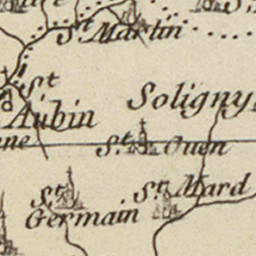 St Martin
St
Aubin
Soligny
St. Ouen
St.
Germain
St. Mard